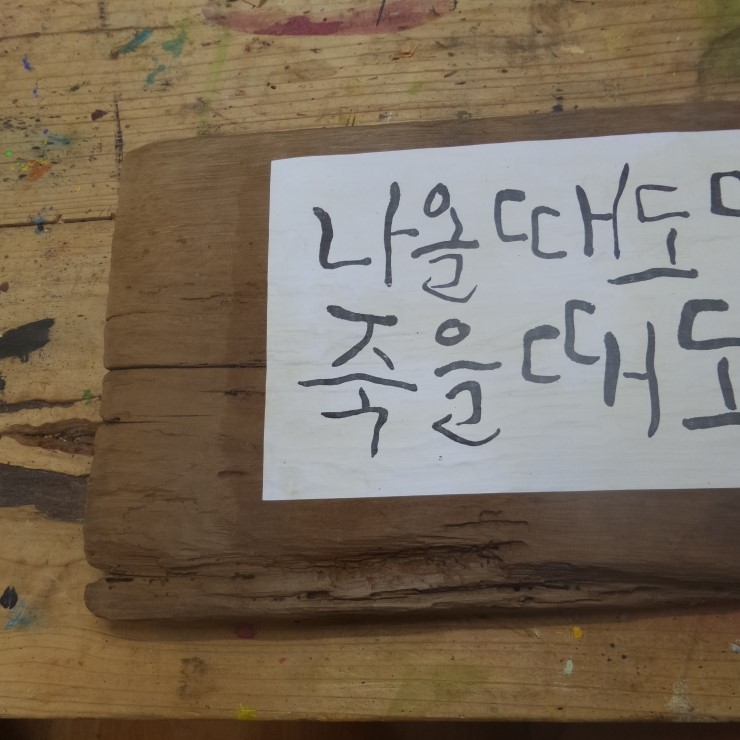 나올때도
죽을때도